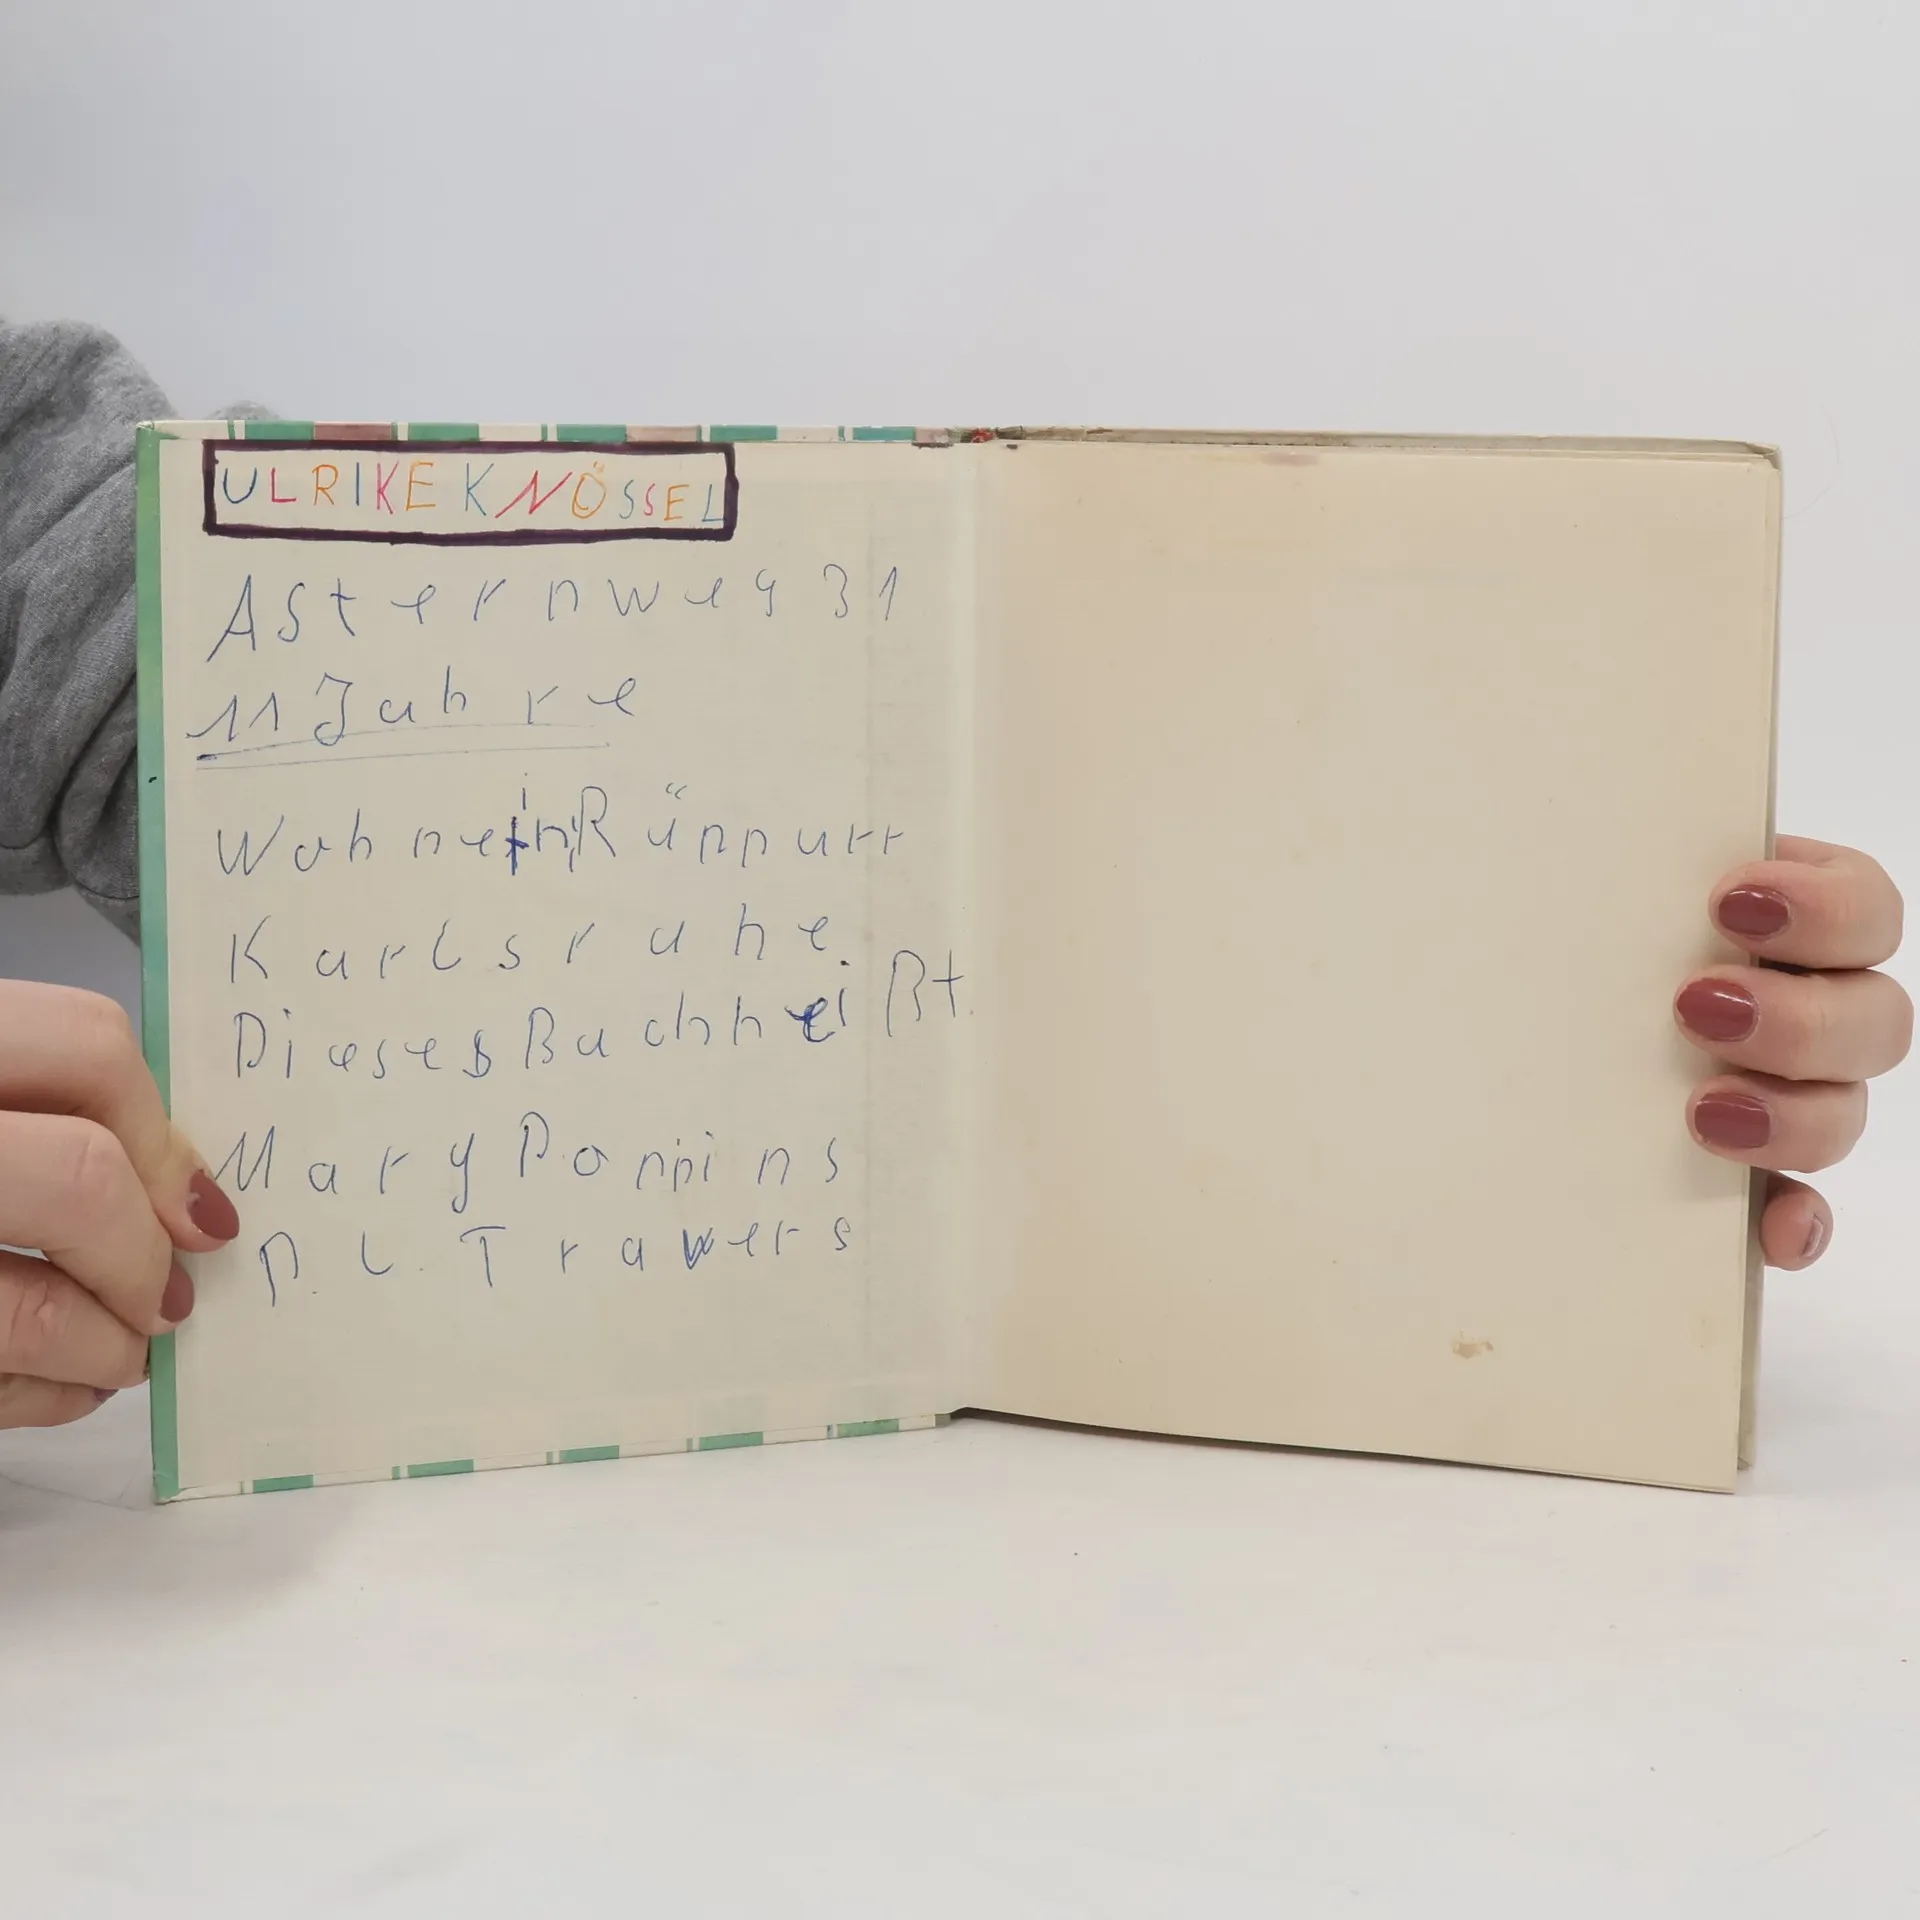 ULRIKE KNÖSSEL
Asternweg 31
11 Jahre
Wohne in Rüppurr
Karlsruhe
Dieses Buch heißt.
Mary Poppins
P. L. Trawers